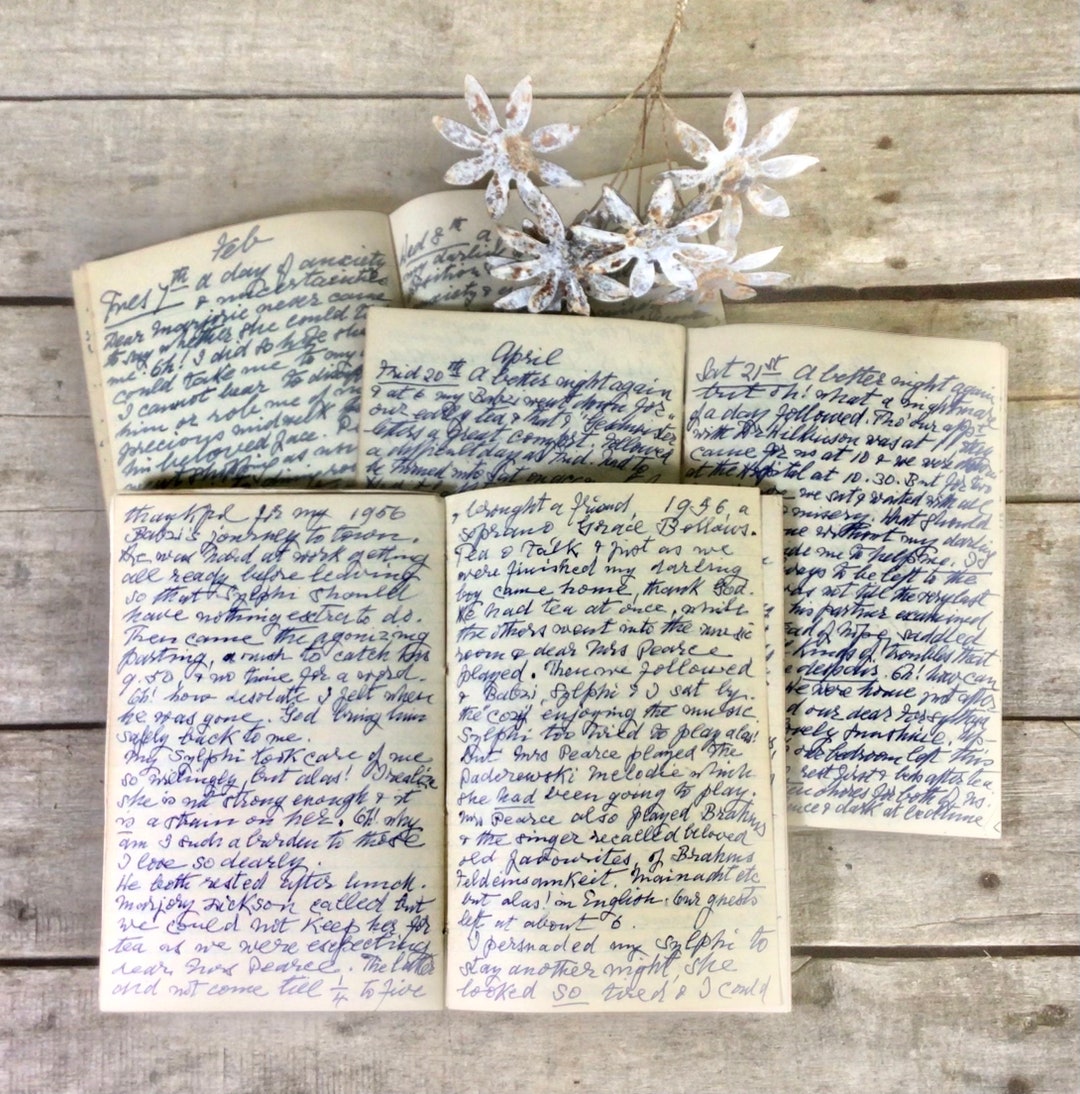 Feb
Tues 7th a day of anxiety
& uncertainties
Dear Marjorie never came
to say whether she could t
me. Oh! I did so hope she
could take me to my
I cannot bear to
him or rob me of
precious
his beloved face.
as
Wed 8th a
my darli
April
Frid 20th A better night again
& at 6 my Babzi went down for
our early tea, & that & "Gentlemaster"
letters a great comfort. Followed
a difficult day as Frid. had to
be turned into
Sat 21st A better night again
but oh! what a nightmare
of a day followed. Tho' our appt
with Dr Wilkinson was at 11 they
came for us at 10 & we were
at the Hospital at 10.30. But for two
we sat & waited with all
misery. What should
me without my darling
me to help me. I
ways to be left to the
was not till the very last
his partner examined
ad of hope, saddled
kinds of troubles that
despairs. Oh! how can
We were home not after
d our dear Forsythia
ovely sunshine. We
our bedroom left this
rest first & beds after tea
chores for both Drs.
& dark at bedtime
thankful for my 1956
Babzi's journey to town.
He was hard at work getting
all ready before leaving
so that Sylphi should
have nothing extra to do.
Then came the agonizing
parting, a rush to catch his
9.50, & no time for a word.
Oh! how desolate I felt when
he was gone. God bring him
safely back to me.
My Sylphi took care of me
so willingly, but alas! I realize
she is not strong enough & it
is a strain on her. Oh why
am I such a burden to those
I love so dearly.
We both rested after lunch.
Marjory Dickson called but
we could not keep her for
tea as we were expecting
dear Mrs Pearce. The latter
did not come till 1/4 to five
& brought a friend, 1956, a
soprano Grace Bollows.
Tea & talk & just as we
were finished my darling
boy came home, thank God.
He had tea at once, while
the others went into the music
room & dear Mrs Pearce
played. Then we followed
& Babzi, Sylphi & I sat by
the "cozy" enjoying the music.
Sylphi too tired to play alas!
But Mrs Pearce played the
Paderewski Melodie which
she had been going to play.
Mrs Pearce also played Brahms
& the singer recalled beloved
old favourites, of Brahms
Feldeinsamkeit, Mainacht etc
but alas! in English. Our guests
left at about 6.
I persuaded my Sylphi to
stay another night, she
looked so tired & I could